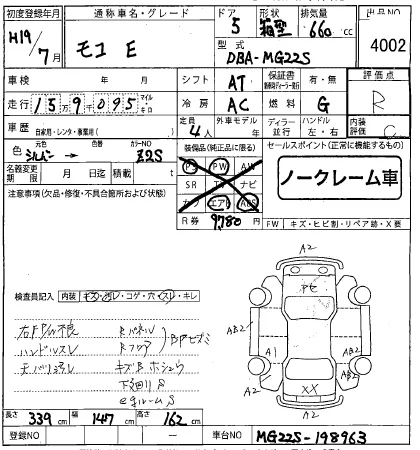 初度登録年月 通称車名・グレード ドア 形状 排気量 出品NO
H19年 7月 モコ E 5 箱型 660cc 4002
型式 DBA-MG22S
車検 年 月 シフト AT 保証書 有・無 評価点
走行 15万9千095 マイル・キロ 冷房 AC 燃料 G R
車歴 自家用・レンタ・事業用( ) 定員 4人 外車モデル ディーラー・並行 ハンドル 左・右 内装評価 C
色 元色 シルバー → 色替 カラーNO Z2S 装備品(純正品に限る) セールスポイント(正常に機能するもの)
名義変更期限 月 日迄 積載 t PS PW AW ノークレーム車
注意事項(欠品・修復・不具合箇所および状態) SR TV ナビ
カワ エアB ABS
R券 9,780円 FW キズ・ヒビ割・リペア跡・X要
検査員記入 内装 キズ・汚レ・コゲ・穴・スレ・キレ
右FPW不良 RパネルS
ハンドルスレ Rフロア
キズB
下廻りS
A2
A2
A2
A1
AB2
AB2
AB2
XX
A2
長さ 339cm 幅 147cm 高さ 162cm
登録NO — 車台NO MG22S-198963